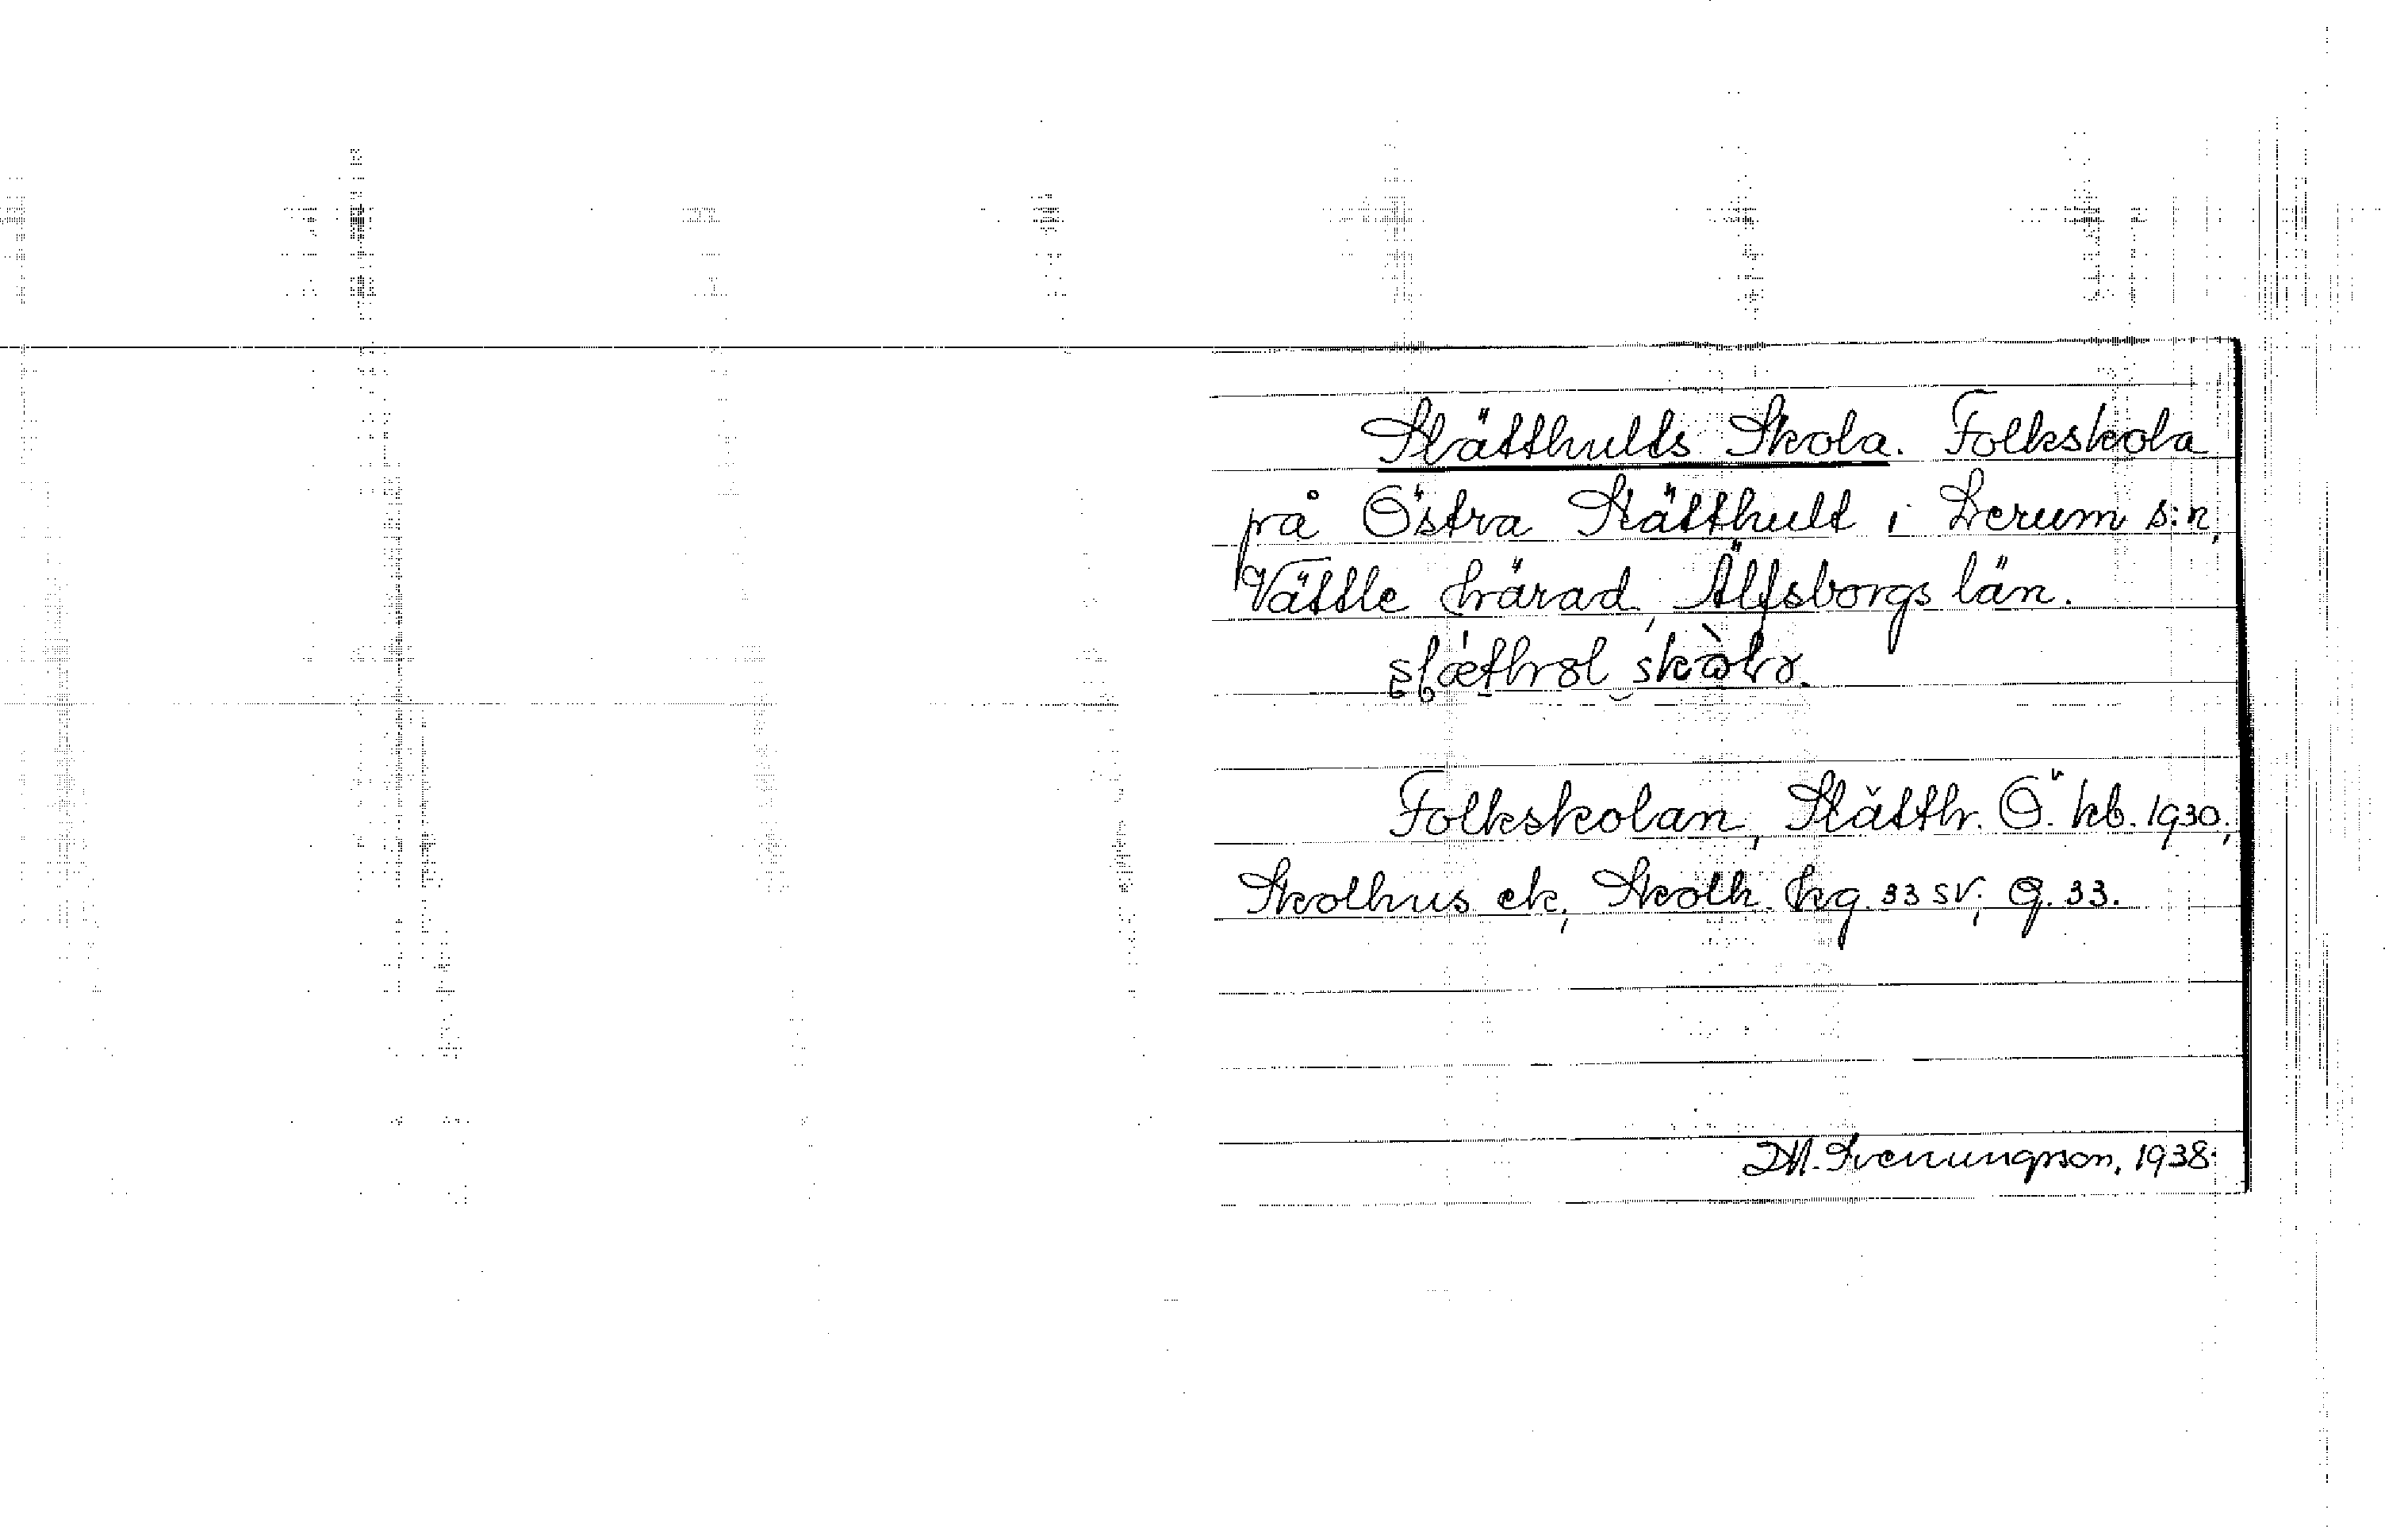 Slätthults Skola. Folkskola
på Östra Slätthult i Lerum s:n,
Vättle härad, Älfsborgs län.
Folkskolan, Slätth. Ö. kb. 1930;
Skolhus ek, Skolh. hg. 33 SV; G. 33.
D.M. Svenungsson, 1938.